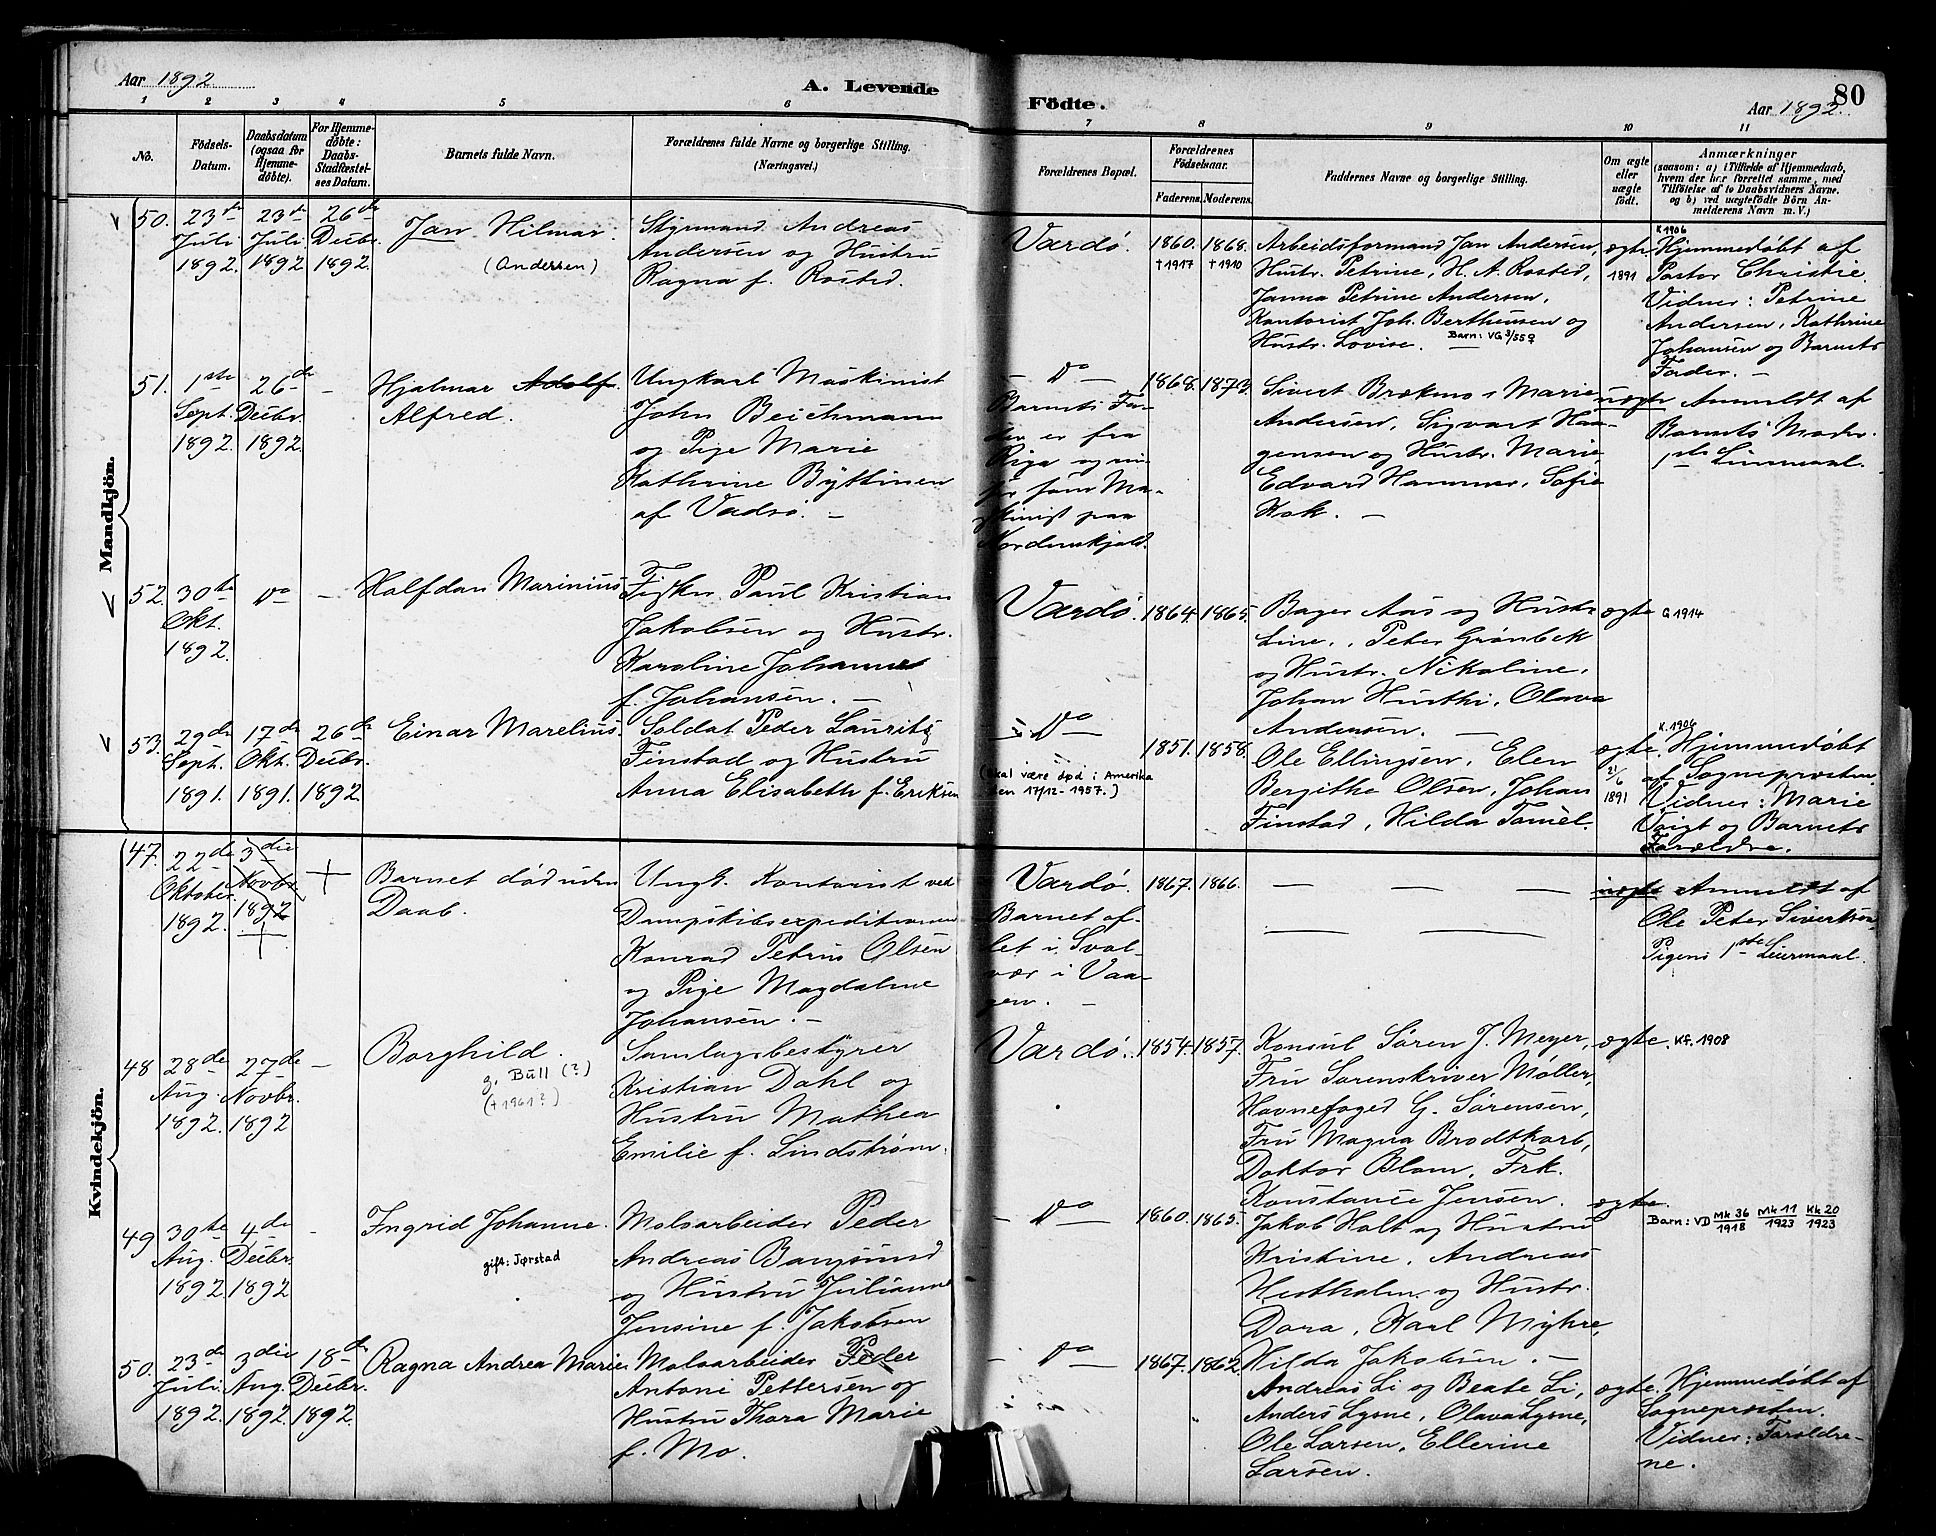 Aar 1892.
A. Levende
Födte.
Aar 1892.
80
1 2 3 4 5 6 7 8 9 10 11
No.
Födsels-
Datum.
Daabsdatum
(ogsaa for
Hjemme-
döbte).
For Hjemme-
döbte:
Daabs-
Stadfæstel-
ses Datum.
Barnets fulde Navn.
Forældrenes fulde Navne og borgerlige Stilling.
(Næringsvei.)
Forældrenes Bopæl.
Forældrenes
Födselsaar.
Faderens. Moderens.
Faddernes Navne og borgerlige Stilling.
Om ægte
eller
uægte
födt.
Anmærkninger
(saasom: a) i Tilfælde af Hjemmedaab,
hvem der har forrettet samme, med
Tilföielse af to Daabsvidners Navne.
og b) ved uægtefödte Börn An-
melderens Navn m. V.)
Mandkjön.
50.
23de
Juli
1892.
23de
Juli
1892
26de
Decbr.
1892.
Jan Hilmar.
(Andersen)
Styrmand Andreas
Andersen og Hustru
Ragna f. Rosted.
Vardø.
1860.
†1917
1868.
†1910
Arbeidsformand Jan Andersen,
Hustr. Petrine, H. A. Rosted,
Janna Petrine Andersen,
Kontorist Joh. Berthensen og
Hustr. Lovise.
Barn: VG 3/55♀
ægte
1891
K 1906
Hjemmedøbt af
Pastor Christie.
Vidner: Petrine
Andersen, Kathrine
Johansen og Barnets
Fader. –
51.
1ste
Sept.
1892.
26de
Decbr.
1892.
–
Hjalmar Adolf
Alfred.
Ungkarl Maskinist
John Beichmann
og Pige Marie
Kathrine Byttinen
af Vadsø. –
– Do –
Barnets Fa-
der er fra
Riga og
som Ma-
skinist paa
Nordenskjold.
1868.
1873.
Sivert Brækmo, Marie
Andersen, Sigvart Haa-
gensen og Hustr. Marie,
Edvard Hammer, Sofie
Kok. –
uægte
Anmeldt af
Barnets Moder.
1ste Leiermaal.
52.
30te
Okt.
1892.
Do
–
Halfdan Marinius
Fiskr. Paul Kristian
Jakobsen og Hustr.
Karoline Johanne
f. Johansen. –
Vardø.
1864.
1865.
Bager Aas og Hustr.
Line, Peter Grønbek
og Hustr. Nikoline,
Johan Husthi, Olava
Andersen. –
ægte
G 1914
53.
29de
Sept.
1891.
17de
Okt.
1891.
26de
Decbr.
1892.
Einar Marelius.
Soldat Peder Lauritz
Finstad og Hustru
Anna Elisabeth f. Eriksen
– Do –
(Skal være død i Amerika
den 17/12-1957.)
1851.
1858.
Ole Ellingsen, Elen
Bergithe Olsen, Johan
Finstad, Hilda Tamel.
ægte.
21/6
1891
K. 1906
Hjemmedøbt
af Sognepresten
Vidner: Marie
Voigt og Barnets
Forældre.
Kvindekjön.
47.
22de
Oktober
1892.
3die
Novbr.
1892
Barnet død uden
Daab.
Ungk. Kontorist ved
Dampskibsexpeditionen
Konrad Petrus Olsen
og Pige Magdaline
Johansen. –
Vardø.
Barnet af-
let i Svol-
vær i Vaa-
gen. –
1867.
1866.
– – –
– – –
uægte
Anmeldt af
Ole Peter Sivertsen,
Pigens 1ste Leiermaal.
48
28de
Aug.
1892.
27de
Novbr.
1892
–
Borghild.
g. Bull (?)
(†1961?)
Samlagsbestyrer
Kristian Dahl og
Hustru Mathea
Emilie f. Lindstrøm.
Vardø.
1854.
1857.
Konsul Søren J. Meyer,
Fru Sorenskriver Møller,
Havnefoged G. Sørensen,
Fru Magna Brodtkorb,
Doktor Blom, Frk.
Konstance Jensen.
ægte.
Kf. 1908
49
30te
Aug.
1892
4de
Decbr.
1892
–
Ingrid Johanne.
gift: Jørstad
Moloarbeider Peder
Andreas Bangsund
og Hustru Juliane
Jensine f. Jakobsen
– Do –
1860.
1865.
Jakob Holt og Hustru
Kristine, Andreas
Hestholm og Hustr.
Dora, Karl Myhre,
Hilda Jakobsen. –
ægte.
Barn: VD Mk 36/1918 Mk 11/1923 Kk 20/1923
50.
23de
Juli
1892.
3die
Aug.
1892.
18de
Decbr.
1892.
Ragna Andrea Marie
Moloarbeider Peder
Antoni Pettersen og
Hustru Thora Marie
f. Mo.
– Do –
1867.
1862.
Andreas Li og Beate Li,
Anders Lysne, Olava Lysne,
Ole Larsen, Ellerine
Larsen.
ægte.
Hjemmedøbt af
Sognepresten.
Vidner: Forældre-
ne.